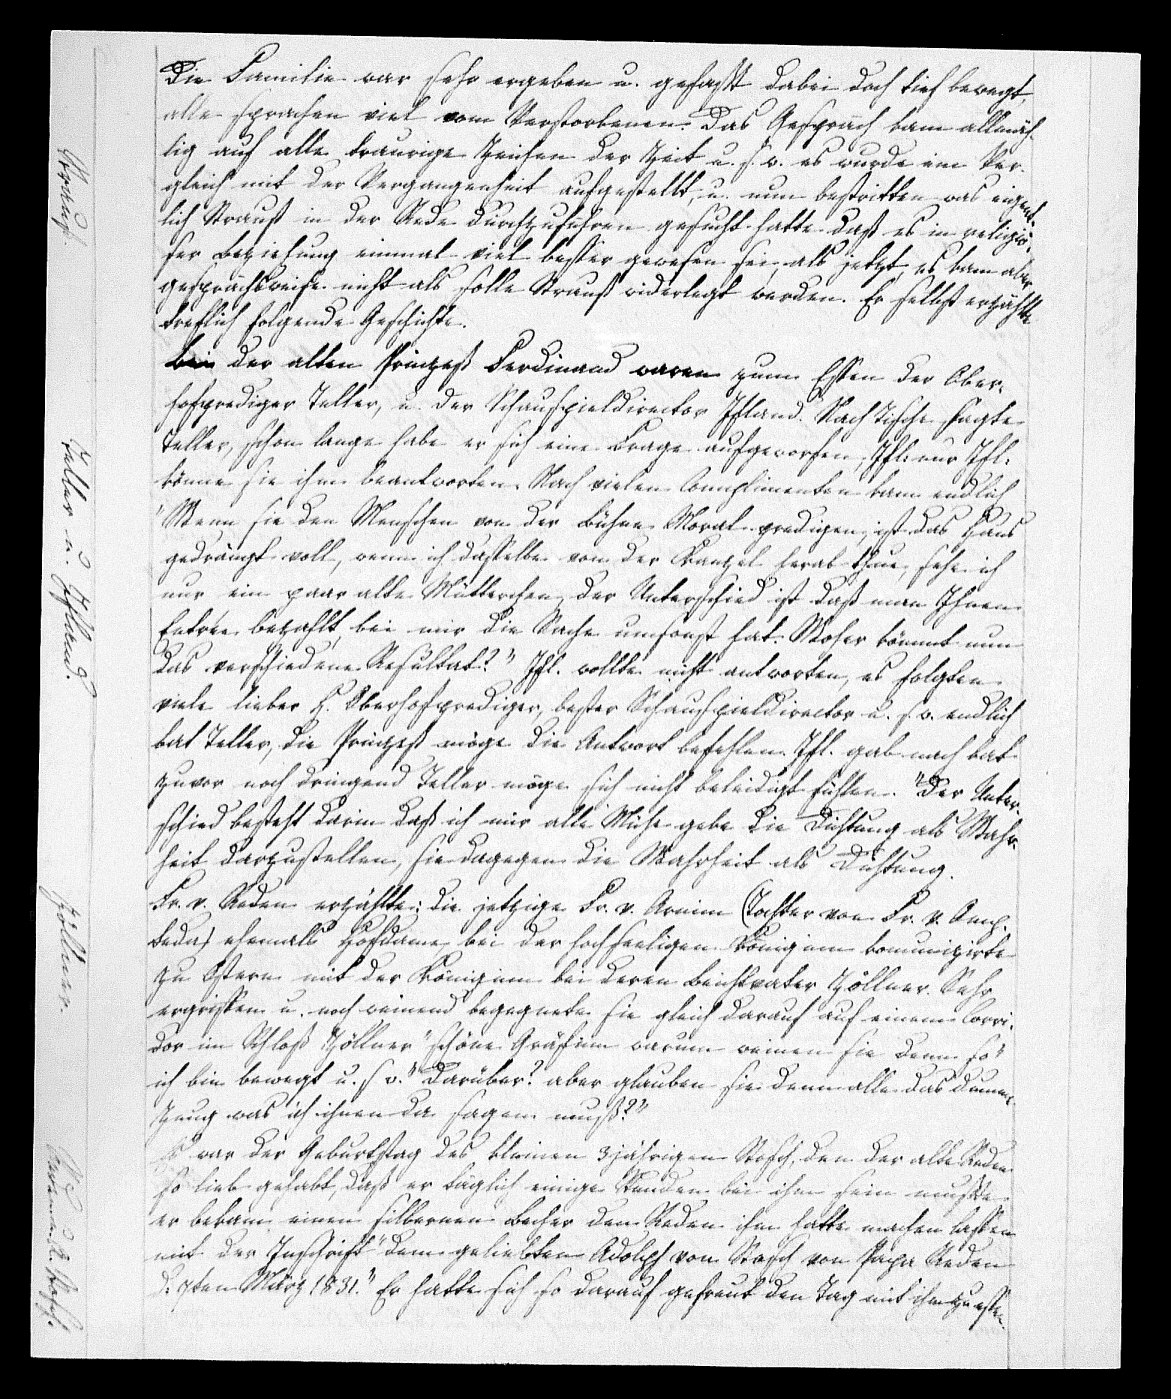 Die Familie war sehr ergeben u. gefaßt dabei doch tief bewegt,
alle sprachen viel vom Verstorbenen. Das Gespräch kam allmäh-
lig auf alle traurige Zeichen der Zeit u. s. w. es wurde ein Ver-
gleich mit der Vergangenheit aufgestellt, u. nun bestritten was eigent-
lich Strauß in der Rede durchzuführen gesucht hatte daß es in religiö-
ser Beziehung einmal viel besser gewesen sei, als jetzt, es kam aber
gesprächsweise nicht als solle Strauß widerlegt werden. Er selbst erzählte
treflich folgende Geschichte.
Bei der alten Prinzeß Ferdinand waren zum Essen der Ober-
hofprediger Teller, u. der Schauspieldirector Ifland. Nach Tische sagte
Teller, schon lange habe er sich eine Frage aufgeworfen, Ifl. nur Ifl.
könne sie ihm beantworten. Nach vielen Complimenten kam endlich
"Wenn sie den Menschen von der Bühne Moral predigen, ist das Haus
gedrängt voll, wenn ich dasselbe von der Kanzel herab thue, sehe ich
nur ein paar alte Mütterchen, der Unterschied ist daß man Ihnen
Entrée bezahlt, bei mir die Sache umsonst hat. Woher kömmt nun
das verschiedene Resultat?" Ifl. wollte nicht antworten, es folgten
viele lieber H. Oberhofprediger, bester Schauspieldirector u. s. w. endlich
bat Teller, die Prinzeß möge die Antwort befehlen. Ifl. gab nach bat
zuvor noch dringend Teller möge sich nicht beleidigt fühlen. "Der Unter-
schied besteht darin daß ich mir alle Mühe gebe die Dichtung als Wahr-
heit darzustellen, sie dagegen die Wahrheit als Dichtung.
Fr. v. Reden erzählte: die jetzige Fr. v. Arnim (Tochter von Fr. v.
ehemals Hofdame bei der hochseeligen Königinn komunizirte
zu Ostern mit der Königinn bei deren Beichtvater Zöllner. Sehr
ergriffen u. noch weinend begegnete sie gleich darauf auf einem Corri-
dor im Schloß Zöllner "schöne Gräfinn warum weinen sie denn so"
ich bin bewegt u. s w. "Darüber? aber glauben sie denn alle das dumme
Zeug was ich ihnen da sagen muß?"
Es war der Geburtstag des kleinen 3jährigen Stosch, den der alte Reden
so lieb gehabt, daß er täglich einige Stunden bei ihm sein mußte
er bekam einen silbernen Becher den Reden ihm hatte machen lassen
mit der Inschrift "dem geliebten Adolph von Stosch von Papa Reden
d: 7ten März 1831." Er hatte sich so darauf gefreut den Tag mit ihm zu essen.
Strauß.
Teller u. Ifland.
Zöllner.